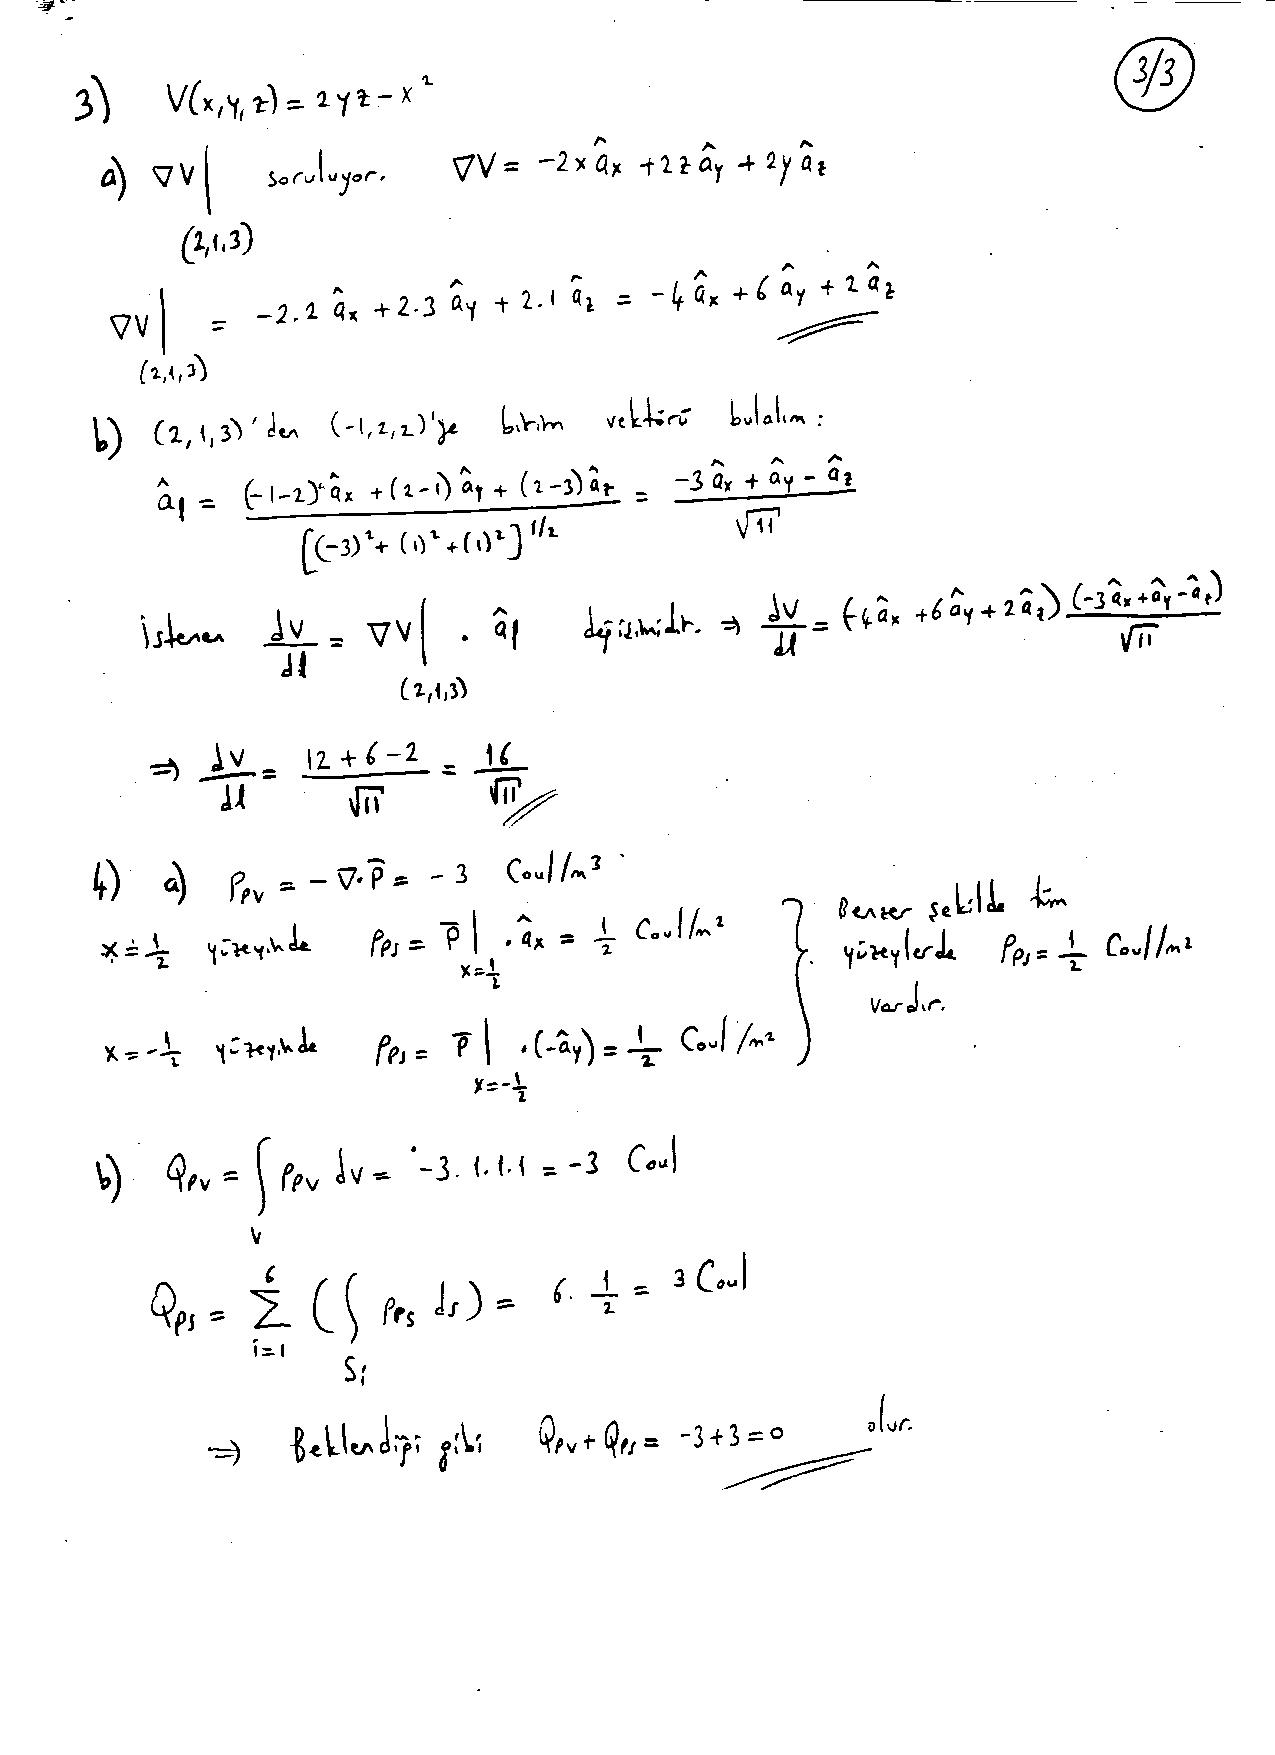 3/3
3) V(x,y,z) = 2yz - x²
a) ∇V|(2,1,3) soruluyor. ∇V = -2x âx + 2z ây + 2y âz
∇V|(2,1,3) = -2.2 âx + 2.3 ây + 2.1 âz = -4 âx + 6 ây + 2 âz
b) (2,1,3)'den (-1,2,2)'ye birim vektörü bulalım :
âl = ((-1-2) âx + (2-1) ây + (2-3) âz) / [(-3)² + (1)² + (1)²]^1/2 = (-3 âx + ây - âz) / √11
İstenen dV/dl = ∇V|(2,1,3) . âl değişimidir. ⇒ dV/dl = (-4 âx + 6 ây + 2 âz) (-3 âx + ây - âz) / √11
⇒ dV/dl = (12 + 6 - 2) / √11 = 16 / √11
4) a) ρpv = - ∇.P̄ = - 3 Coul/m³
x = 1/2 yüzeyinde ρps = P̄|x=1/2 . âx = 1/2 Coul/m²
x = -1/2 yüzeyinde ρps = P̄|x=-1/2 . (-ây) = 1/2 Coul/m²
} Benzer şekilde tüm
yüzeylerde ρps = 1/2 Coul/m²
vardır.
b) Qpv = ∫v ρpv dv = -3. 1.1.1 = -3 Coul
Qps = Σ i=1 6 (∫Si ρps ds) = 6. 1/2 = 3 Coul
⇒ Beklendiği gibi Qpv + Qps = -3+3=0 olur.